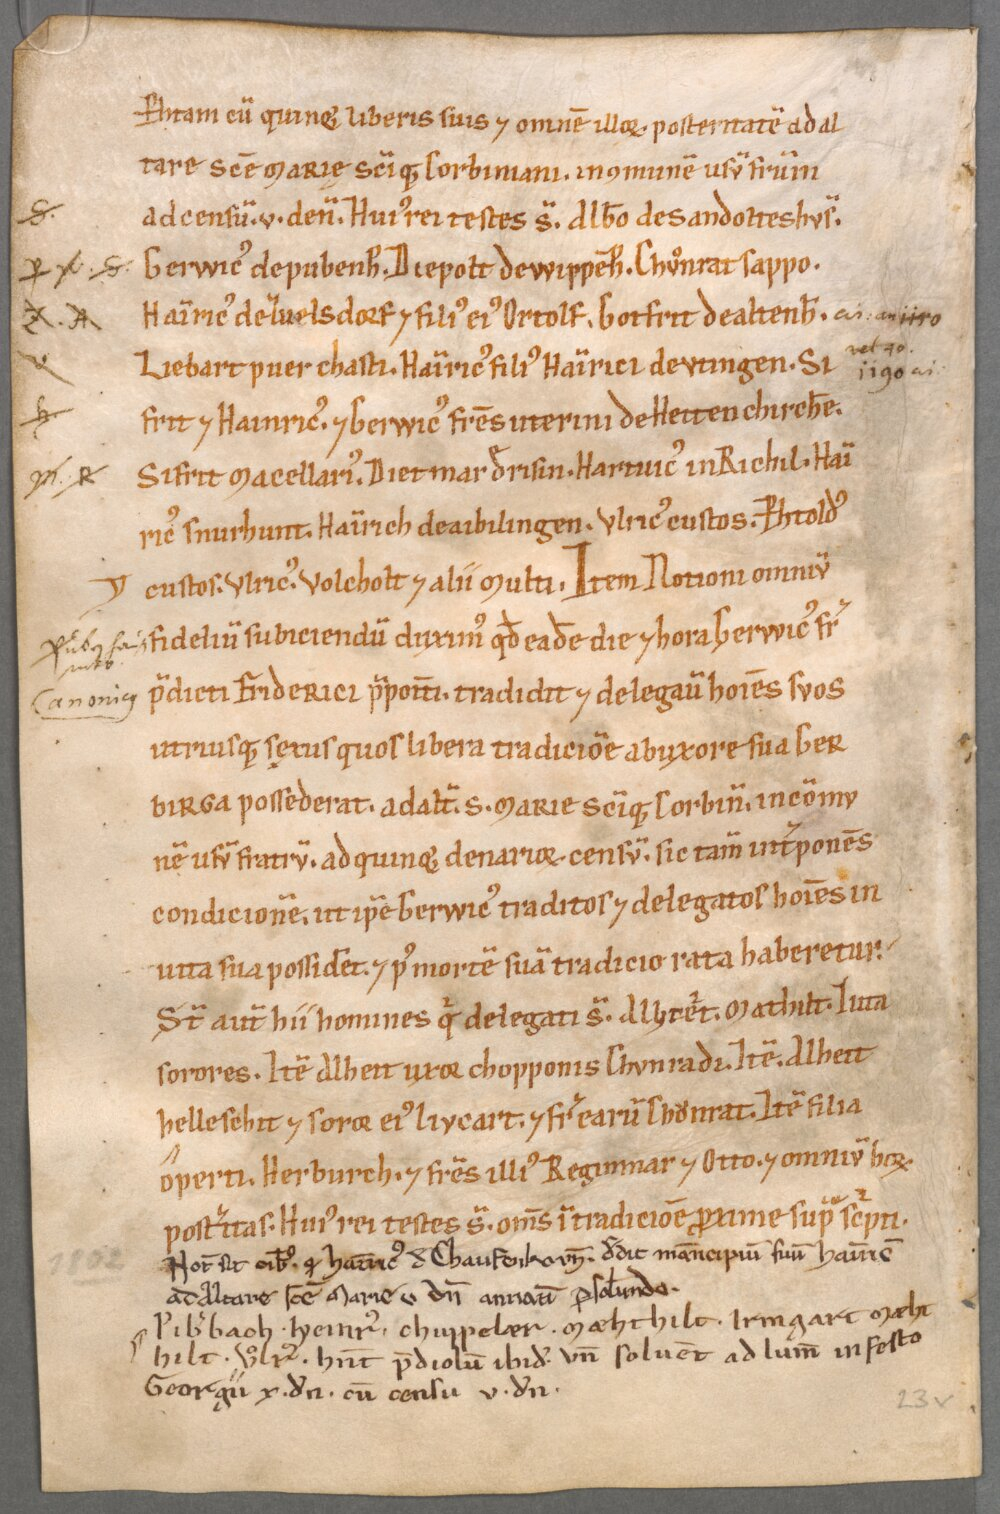 tam cū quinq; liberis suis ⁊ omnē illoꝝ posteritatē ad al
tare scē MARIĘ scīq; Corbiniani. in ꝯmunē usū frūm
ad censū .v. den̄. Hui' rei testes s̄. Alb̄o de sandolteshvs̄.
Gerwic' de pubenh̄. Diepolt de wippēh̄. Chůnrat sappo.
Haīric' de luelsdorf ⁊ fili' ei' Ortolf. Gotfrit de altenh̄.
Liebart puer chasti. Haīric' fili' Haīrici de vtingen. Si
frit ⁊ Hainric'. ⁊ Gerwic' frēs uterini de Heitenchirch̄e.
Sifrit Macellari'. Dietmar drisin. Hartuic' in Richil. Haī
ric' snurhunt. Haīrich de aibilingen. Vlric' custos.
custos. Vlric'. Volcholt ⁊ alii multi. Item Notioni omniū
fideliū subiciendū duxim' qd̄ eadē die ⁊ hora Gerwic' fr̄
p̄dicti FRIDERICI p̄poīti. tradidit ⁊ delegaū hoīes svos
Canonicy
utriusq; sexus quos libera tradiciōe ab uxore sua GER
BIRGA possederat. ad alt̄. s. MARIE scīq; Corbin̄. in cōmv
nē usū fratrū. ad quinq; denarioꝝ censū. sic tam̄ int̄ponēs
condicionē. ut ip̄e Gerwic' traditos ⁊ delegatos hoīes in
uita sua possidēt. ⁊ p' mortē suā tradicio rata haberetur.
St̄ aut̄ hii homines q̄ delegati s̄. Mathilt. Iuta
sorores. Itē Alheit uxor chopponis Chvnradi. Itē. Alheit
helleschit ⁊ soror ei' livcart. ⁊ fr̄ earū Chŏnrat. Itē filia
operti. Herburch. ⁊ frēs illi' Reginmar ⁊ Otto. ⁊ omniū hoꝝ
post̄itas. Hui' rei testes s̄. om̄s ī tradiciōe ꝓxime sup̄ sc̄pti.
Not̄ sit oīb'. ꝙ haīric' d̄ . d̄dit mācipiū suū
ad Altare scē Marie v dn̄ annatī ꝑsoluendo.
Pib̄bach. heinr̄'. chuppeler. Mæhthilt. Irmgart Mæht
hilt. Vlr̄'. hn̄t p̄diolū ibid'. vn̄ soluēt ad lum̄ in festo
Georgii x. dn̄. cū censu v. dn̄.
23v